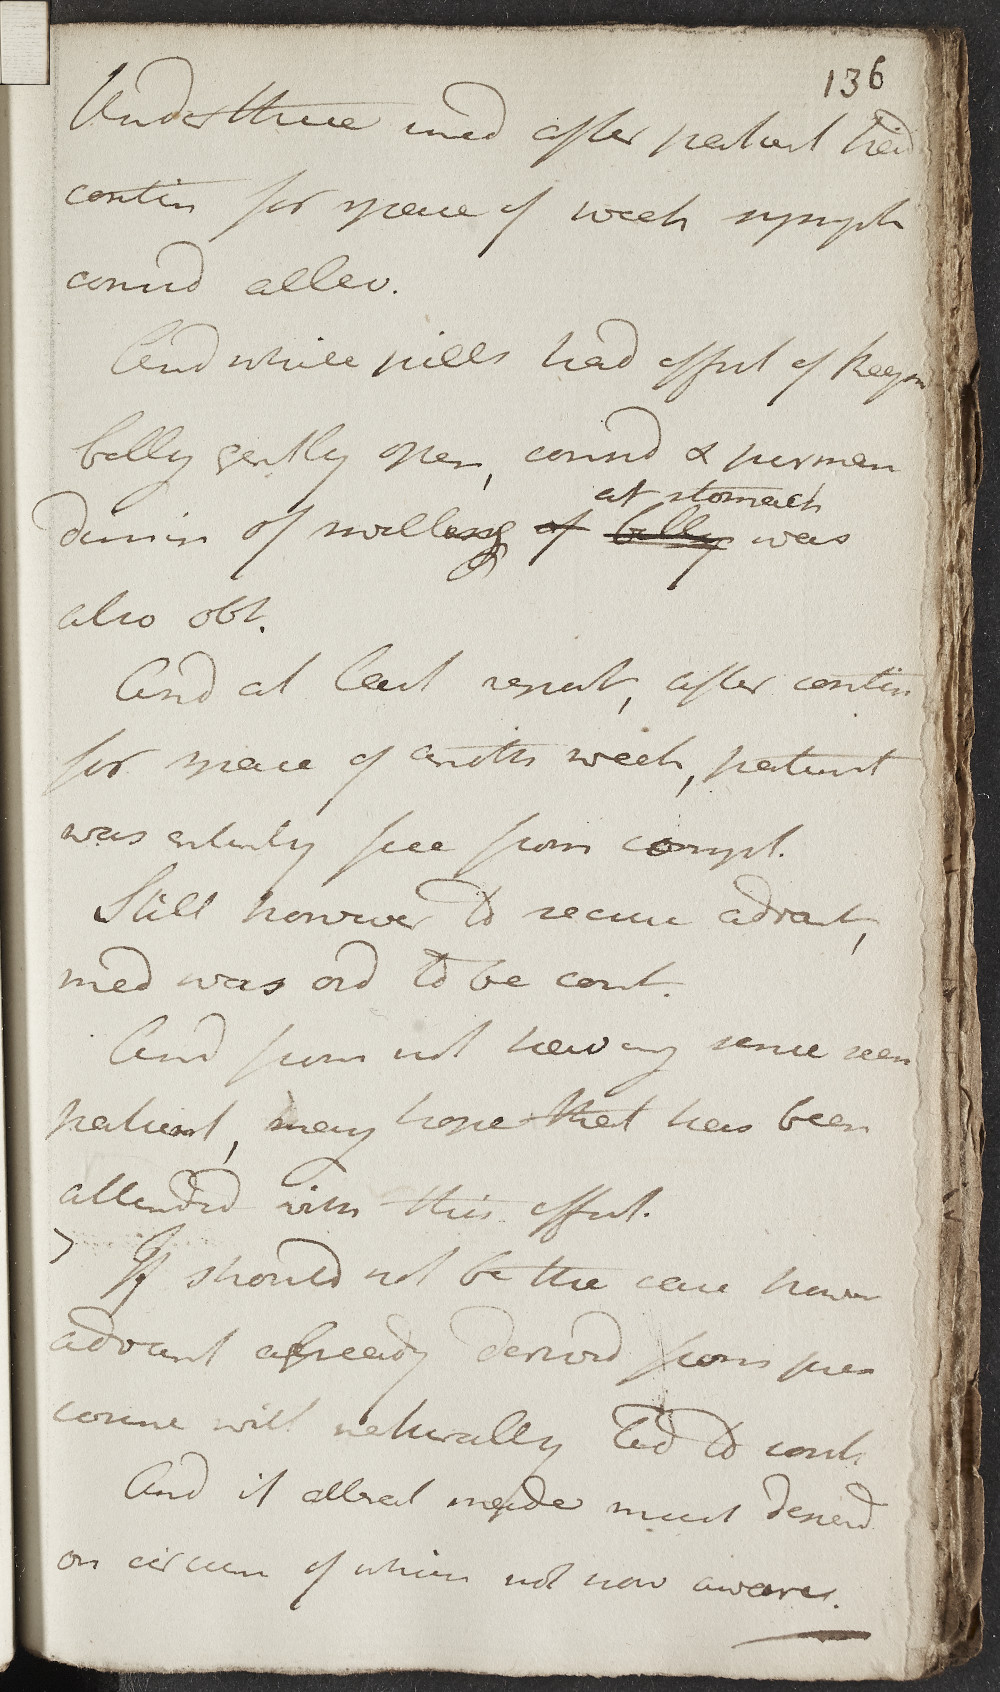 136
Under these med after patient had
contin for space of week symph
consid allev.
And while pills had effect of keepin
belly gently open, consid & perman
dimin of swelling of belly at stomach was
also obt.
And at last report, after contin
for space of anothr week, patient
was entirely free from compl.
Still however to secure advant,
med was ord to be cont.
And from not having since seen
patient, may hope that has been
attended with this effect.
If should not be the case howr
advant already derivd from pres
course will naturally led to cont.
And if alterat made must depend
on circum of which not now aware.